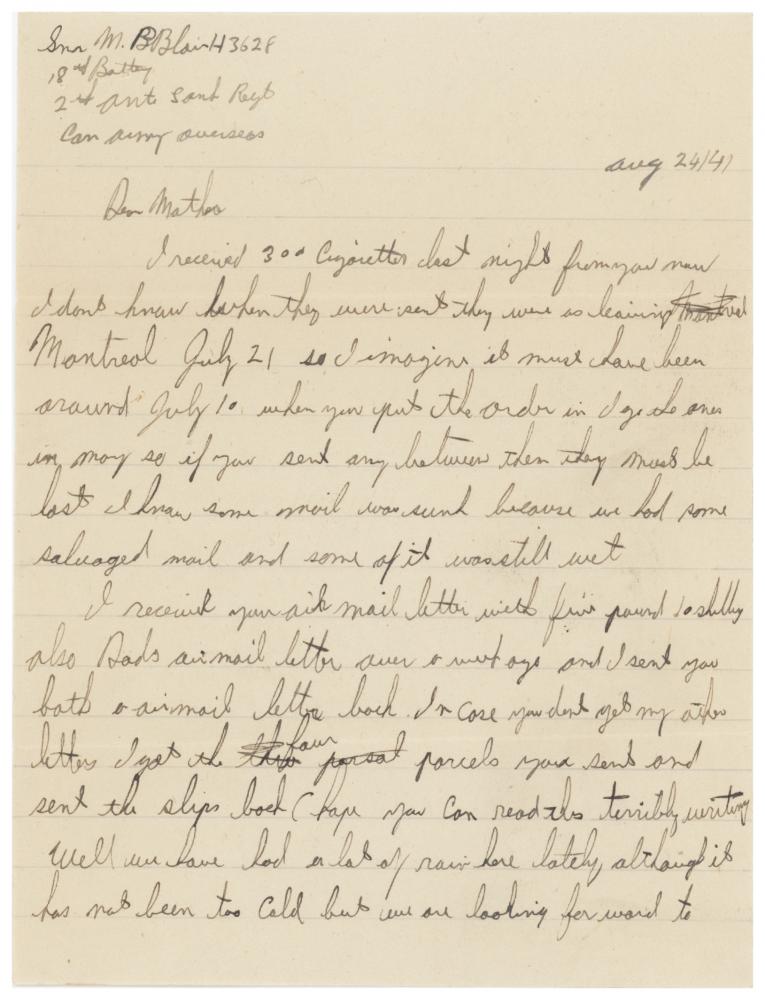 Gnr M. B Blair H3628
18th Battey
2nd Ant Tank Regt
Can army overseas
aug 24/41
Dear Mother
I received 300 Cigarettes last night from you now
I dont know when they were sent they were as leaving Montreal
Montreal July 21 so I imagine it must have been
around July 10 when you put the order in I got the ones
in may so if you sent any between then they must be
lost I know some mail was sunk because we had some
salvaged mail and some of it was still wet
I received your air mail letter with five pound 10 shilling
also Dads air mail letter over a week ago and I sent you
both a airmail letter back. In case you dont get my other
letters I got the three four parsal parcels you sent and
sent the slips back (hope you can read this terribly writing
Well we have had a lot of rain here lately although it
has not been too cold but we are looking forward to